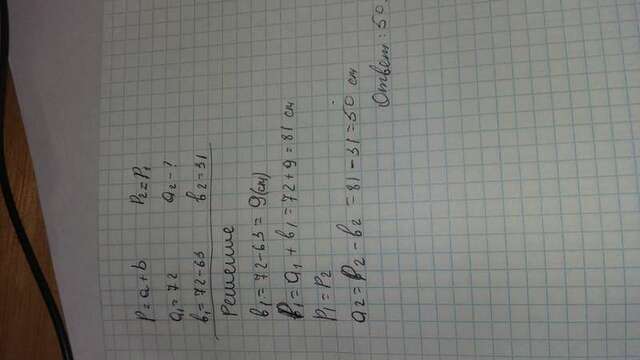 P=a+b P₂=P₁
a₁=72 a₂-?
b₁=72-63 b₂=31
Решение
b₁=72-63=9(см)
P₁=a₁+b₁=72+9=81 см
P₁=P₂
a₂=P₂-b₂=81-31=50 см
Ответ: 50